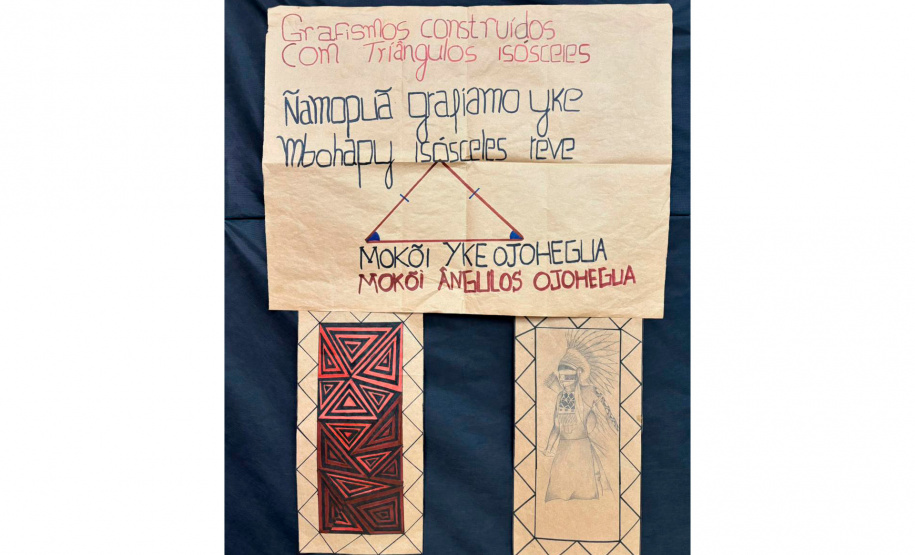 Grafismos construídos
Com Triângulos isósceles
Ñamopuã grafiamo yke
Mbohapy isósceles reve
MOKÕI YKE OJOHEGUA
MOKÕI ÂNGULOS OJOHEGUA